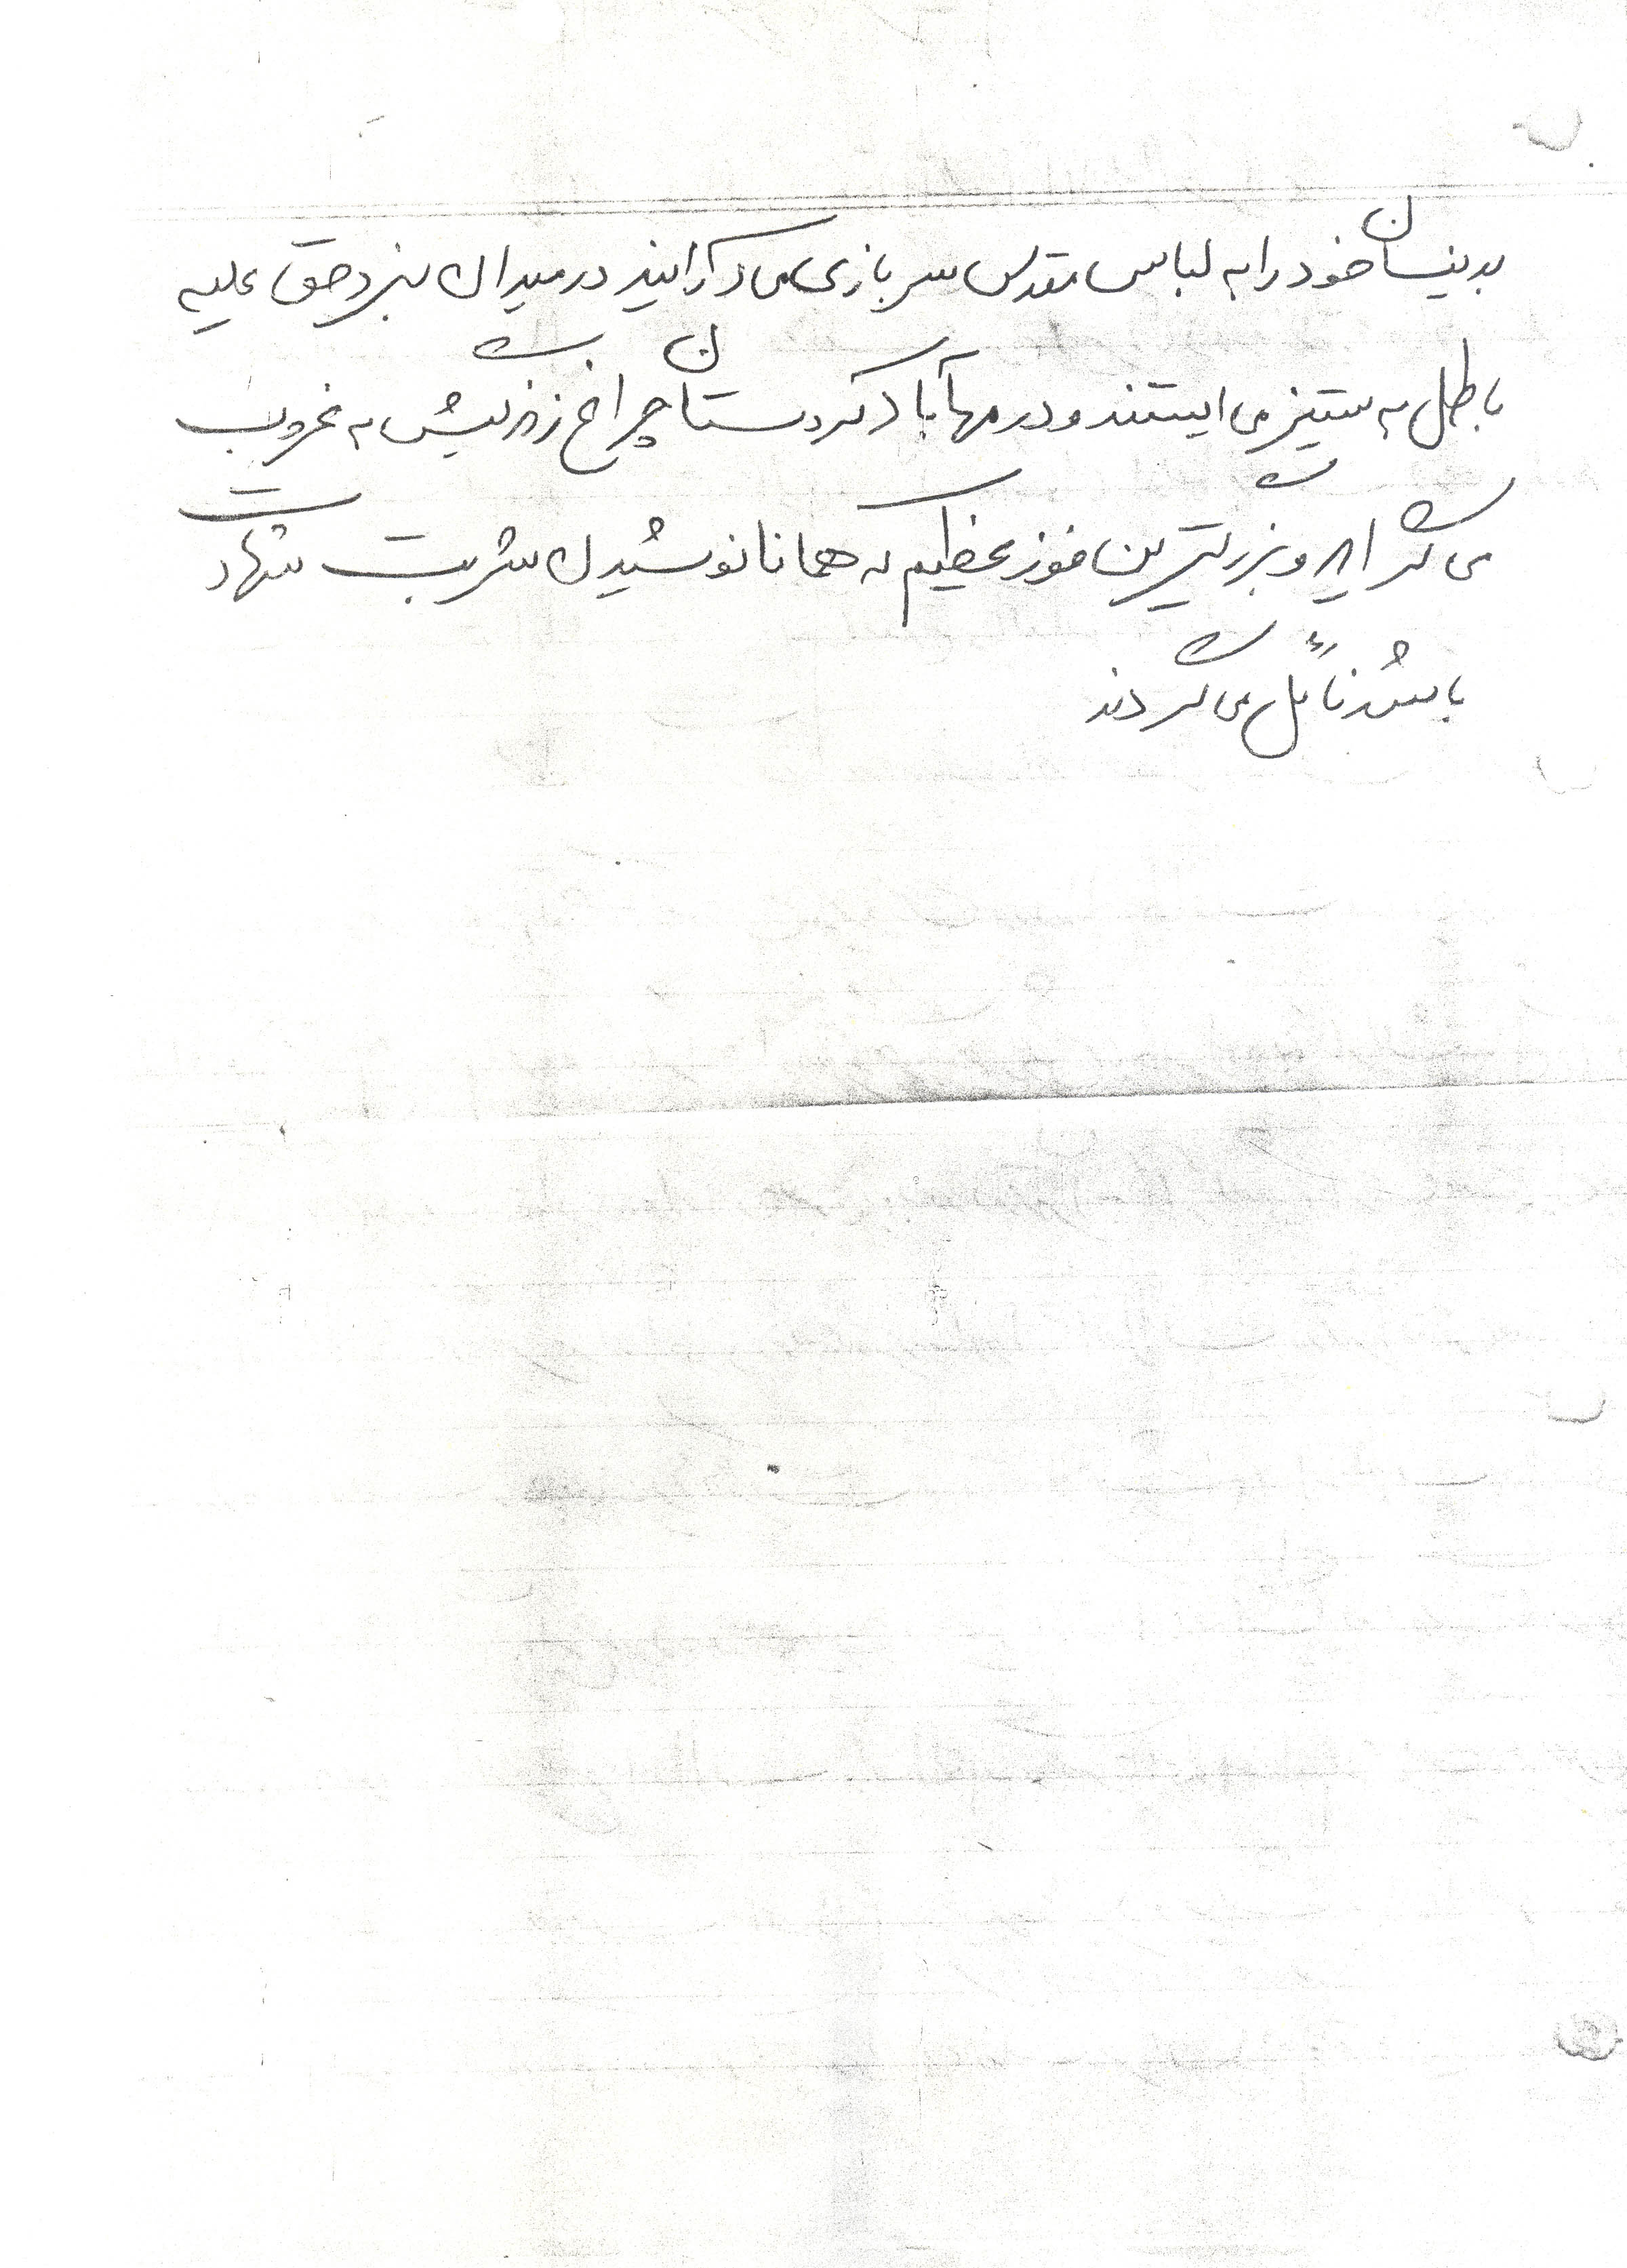 بدینسان خود را به لباس مقدس سربازی می آراید در میدان نبرد حق علیه
باطل به ستیز می ایستند و در مهاباد کردستان چراغ زندگیش به غروب
می گراید و بزرگترین فوز عظیم که همانا نوشیدن شربت شهادت
باشد نائل می گردند